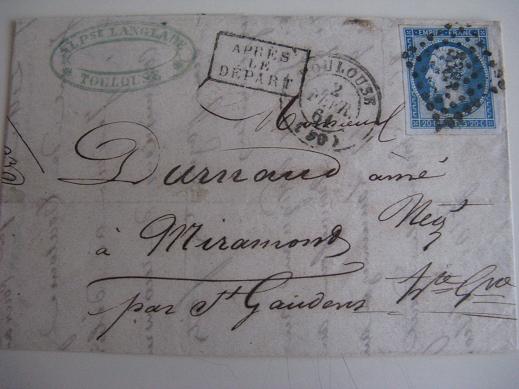 ALPSE LANGLADE
TOULOUSE
APRÈS
LE
DÉPART
TOULOUSE
2
FEVR.
(30)
EMPIRE FRANC
20 C
20 C
Monsieur
Durnaud aîné
Negt
à Miramond
par St Gaudens Hte Gne